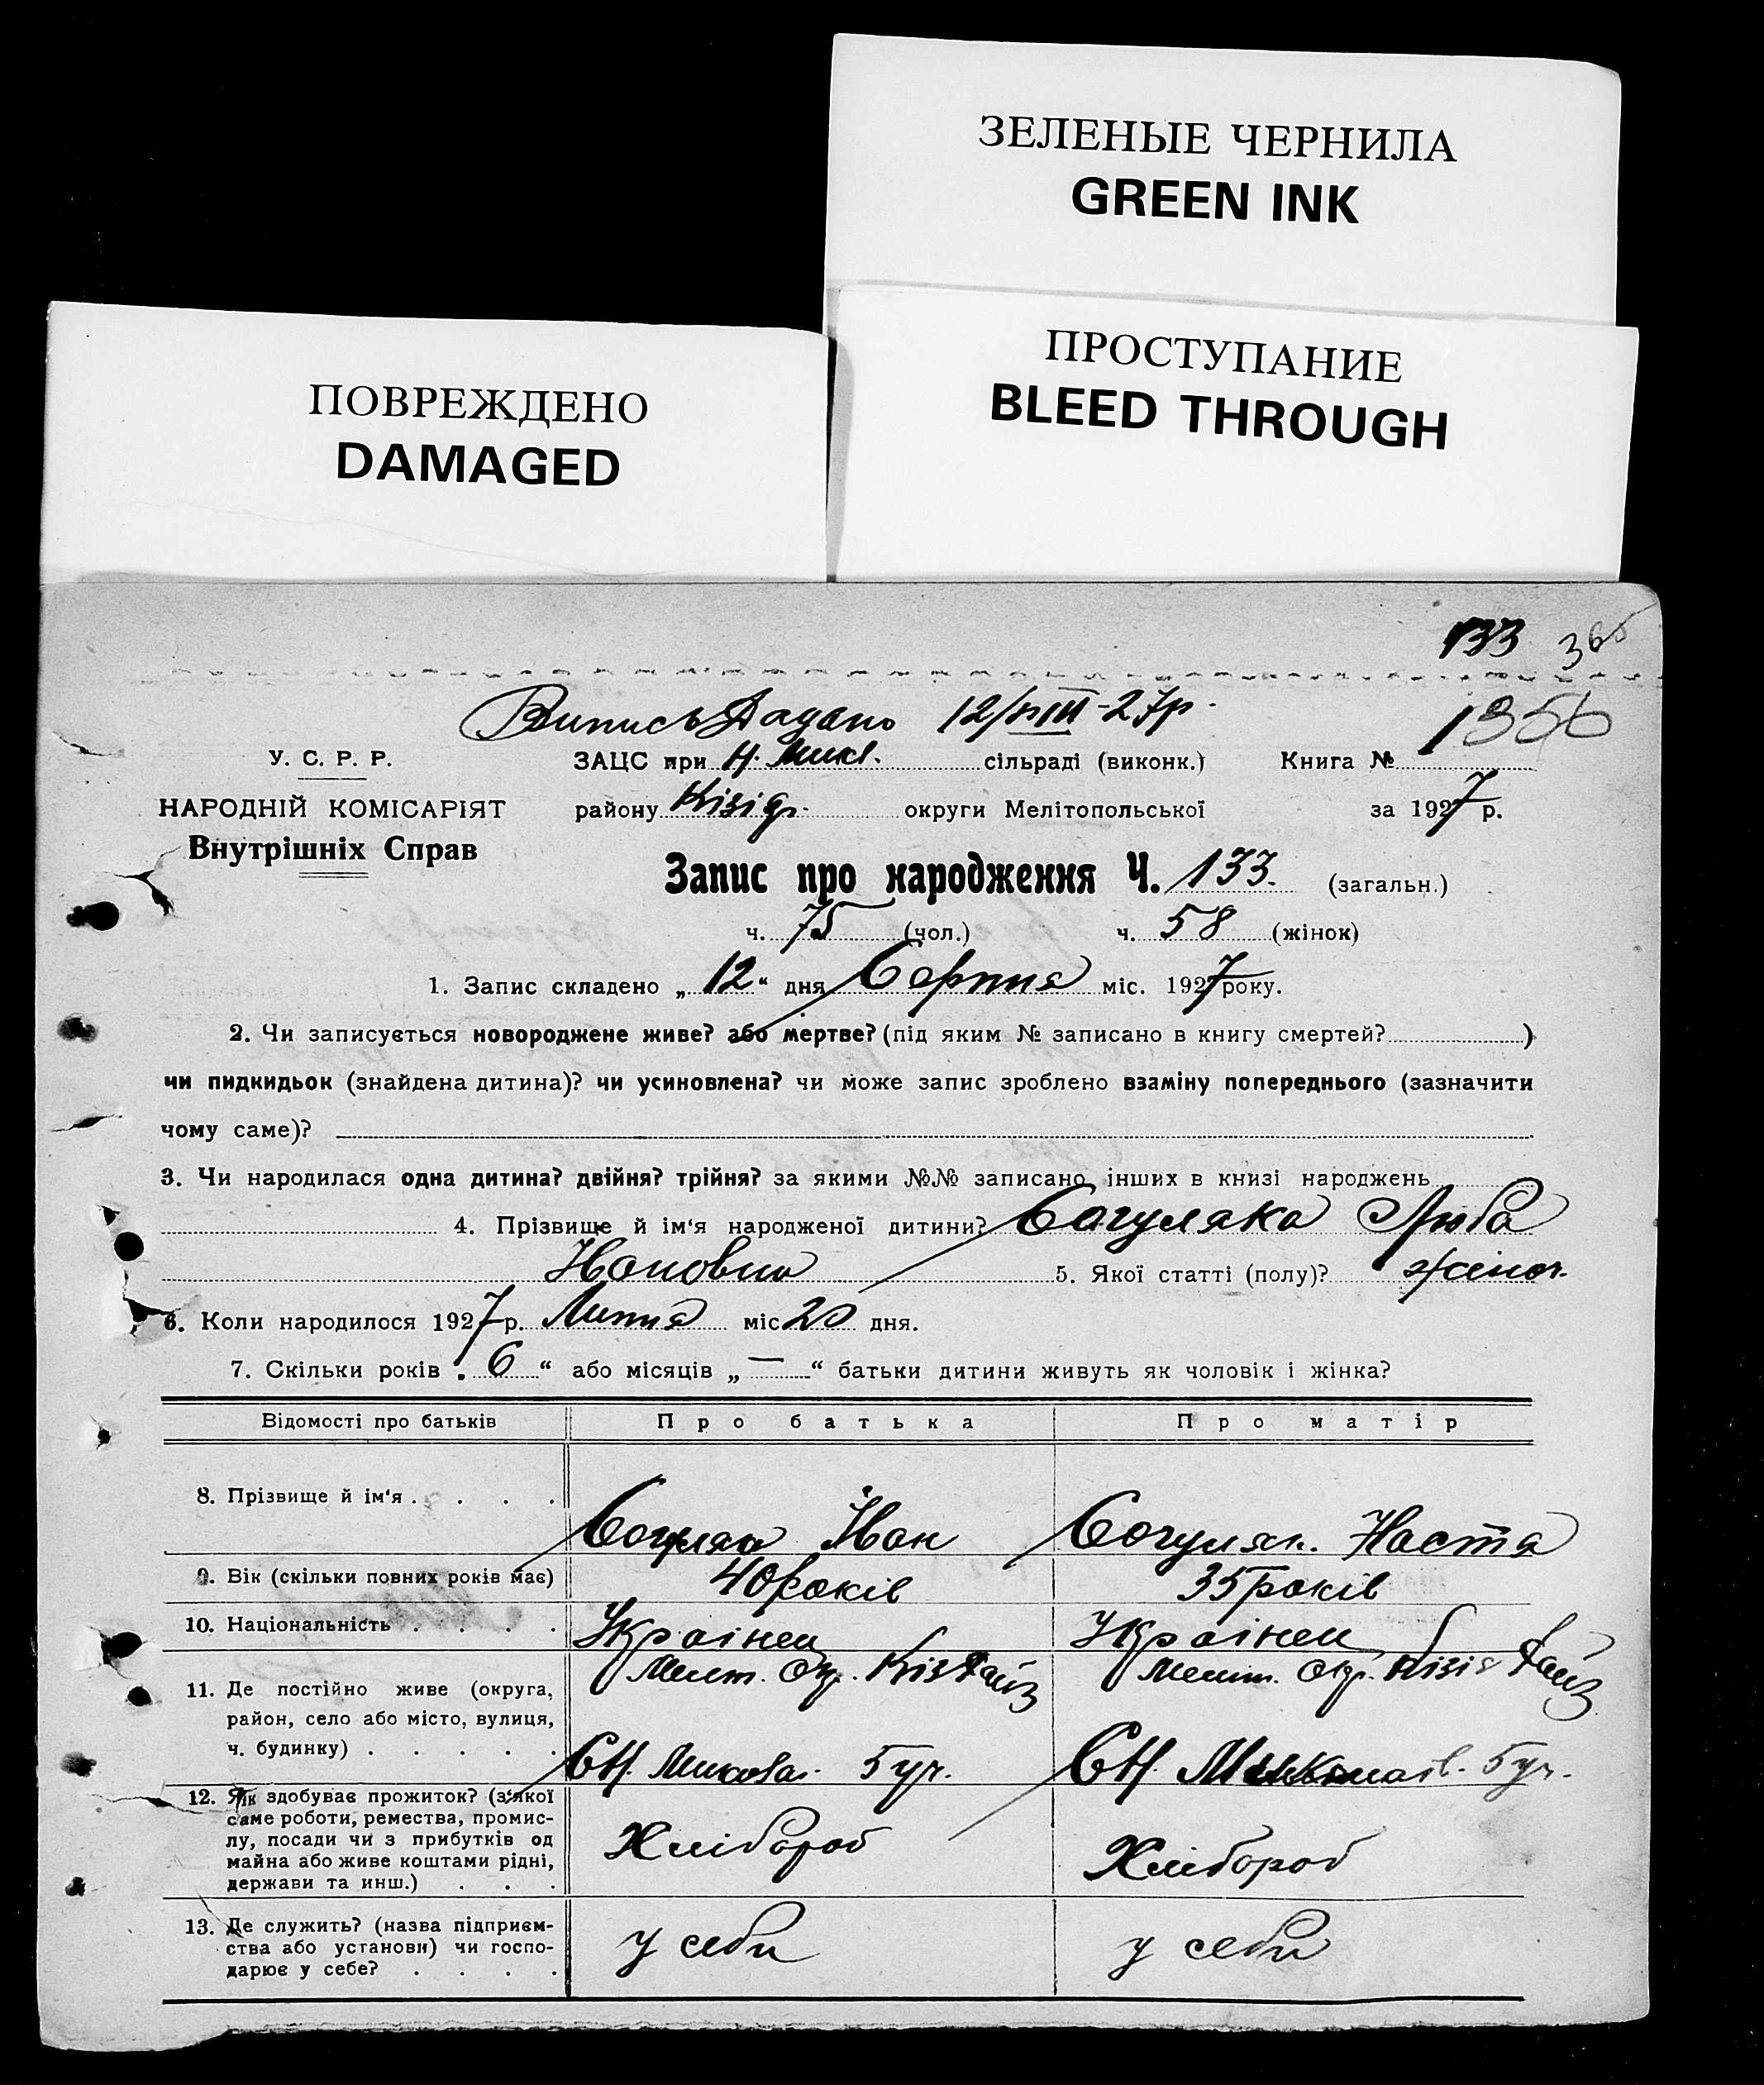 ЗЕЛЕНЫЕ ЧЕРНИЛА
GREEN INK
ПРОСТУПАНИЕ
BLEED THROUGH
ПОВРЕЖДЕНО
DAMAGED
133 366
Випись Дадано 12/VIII-27р.
1 356
У. С. Р. Р.
ЗАЦС при Н. Микл. сільраді (виконк.) Книга №
НАРОДНІЙ КОМІСАРІЯТ
району Кізіяр. округи Мелітопольської за 1927 р.
Внутрішніх Справ
Запис про народження Ч. 133. (загальн.)
ч. 75 (чол.) ч. 58 (жінок)
1. Запис складено „12“ дня Серпня міс. 1927 року.
2. Чи записується новороджене живе? або мертве? (під яким № записано в книгу смертей? )
чи пидкидьок (знайдена дитина)? чи усиновлена? чи може запис зроблено взаміну попереднього (зазначити
чому саме)?
3. Чи народилася одна дитина? двійня? трійня? за якими №№ записано інших в книзі народжень
4. Прізвище й ім‘я народженої дитини? Согуляка Люба
Івановна 5. Якої статті (полу)? жіноч.
6. Коли народилося 1927 р. Липня міс 20 дня.
7. Скільки років „6“ або місяців „—“ батьки дитини живуть як чоловік і жінка?
Відомості про батьків Про батька Про матір
8. Прізвище й ім‘я . . . . Согуляк Іван Согуляк. Настя
9. Вік (скільки повних років має) 40 років 35 років
10. Національність . . . . Українец Українец
11. Де постійно живе (округа, Мелит. Окр. Кізі Район Мелит. Окр. Кізія Район
район, село або місто, вулиця,
ч. будинку) . . . . . СН. Микола. 5 уч. СН. Миколаів. 5 уч.
12. Як здобуває прожиток? (з‘якої
саме роботи, ремества, промис-
лу, посади чи з прибутків од Хлібороб Хлібороб
майна або живе коштами рідні,
держави та инш.) . . .
13. Де служить? (назва підприєм-
ства або установи) чи госпо- у себи у себи
дарює у себе? . . . .